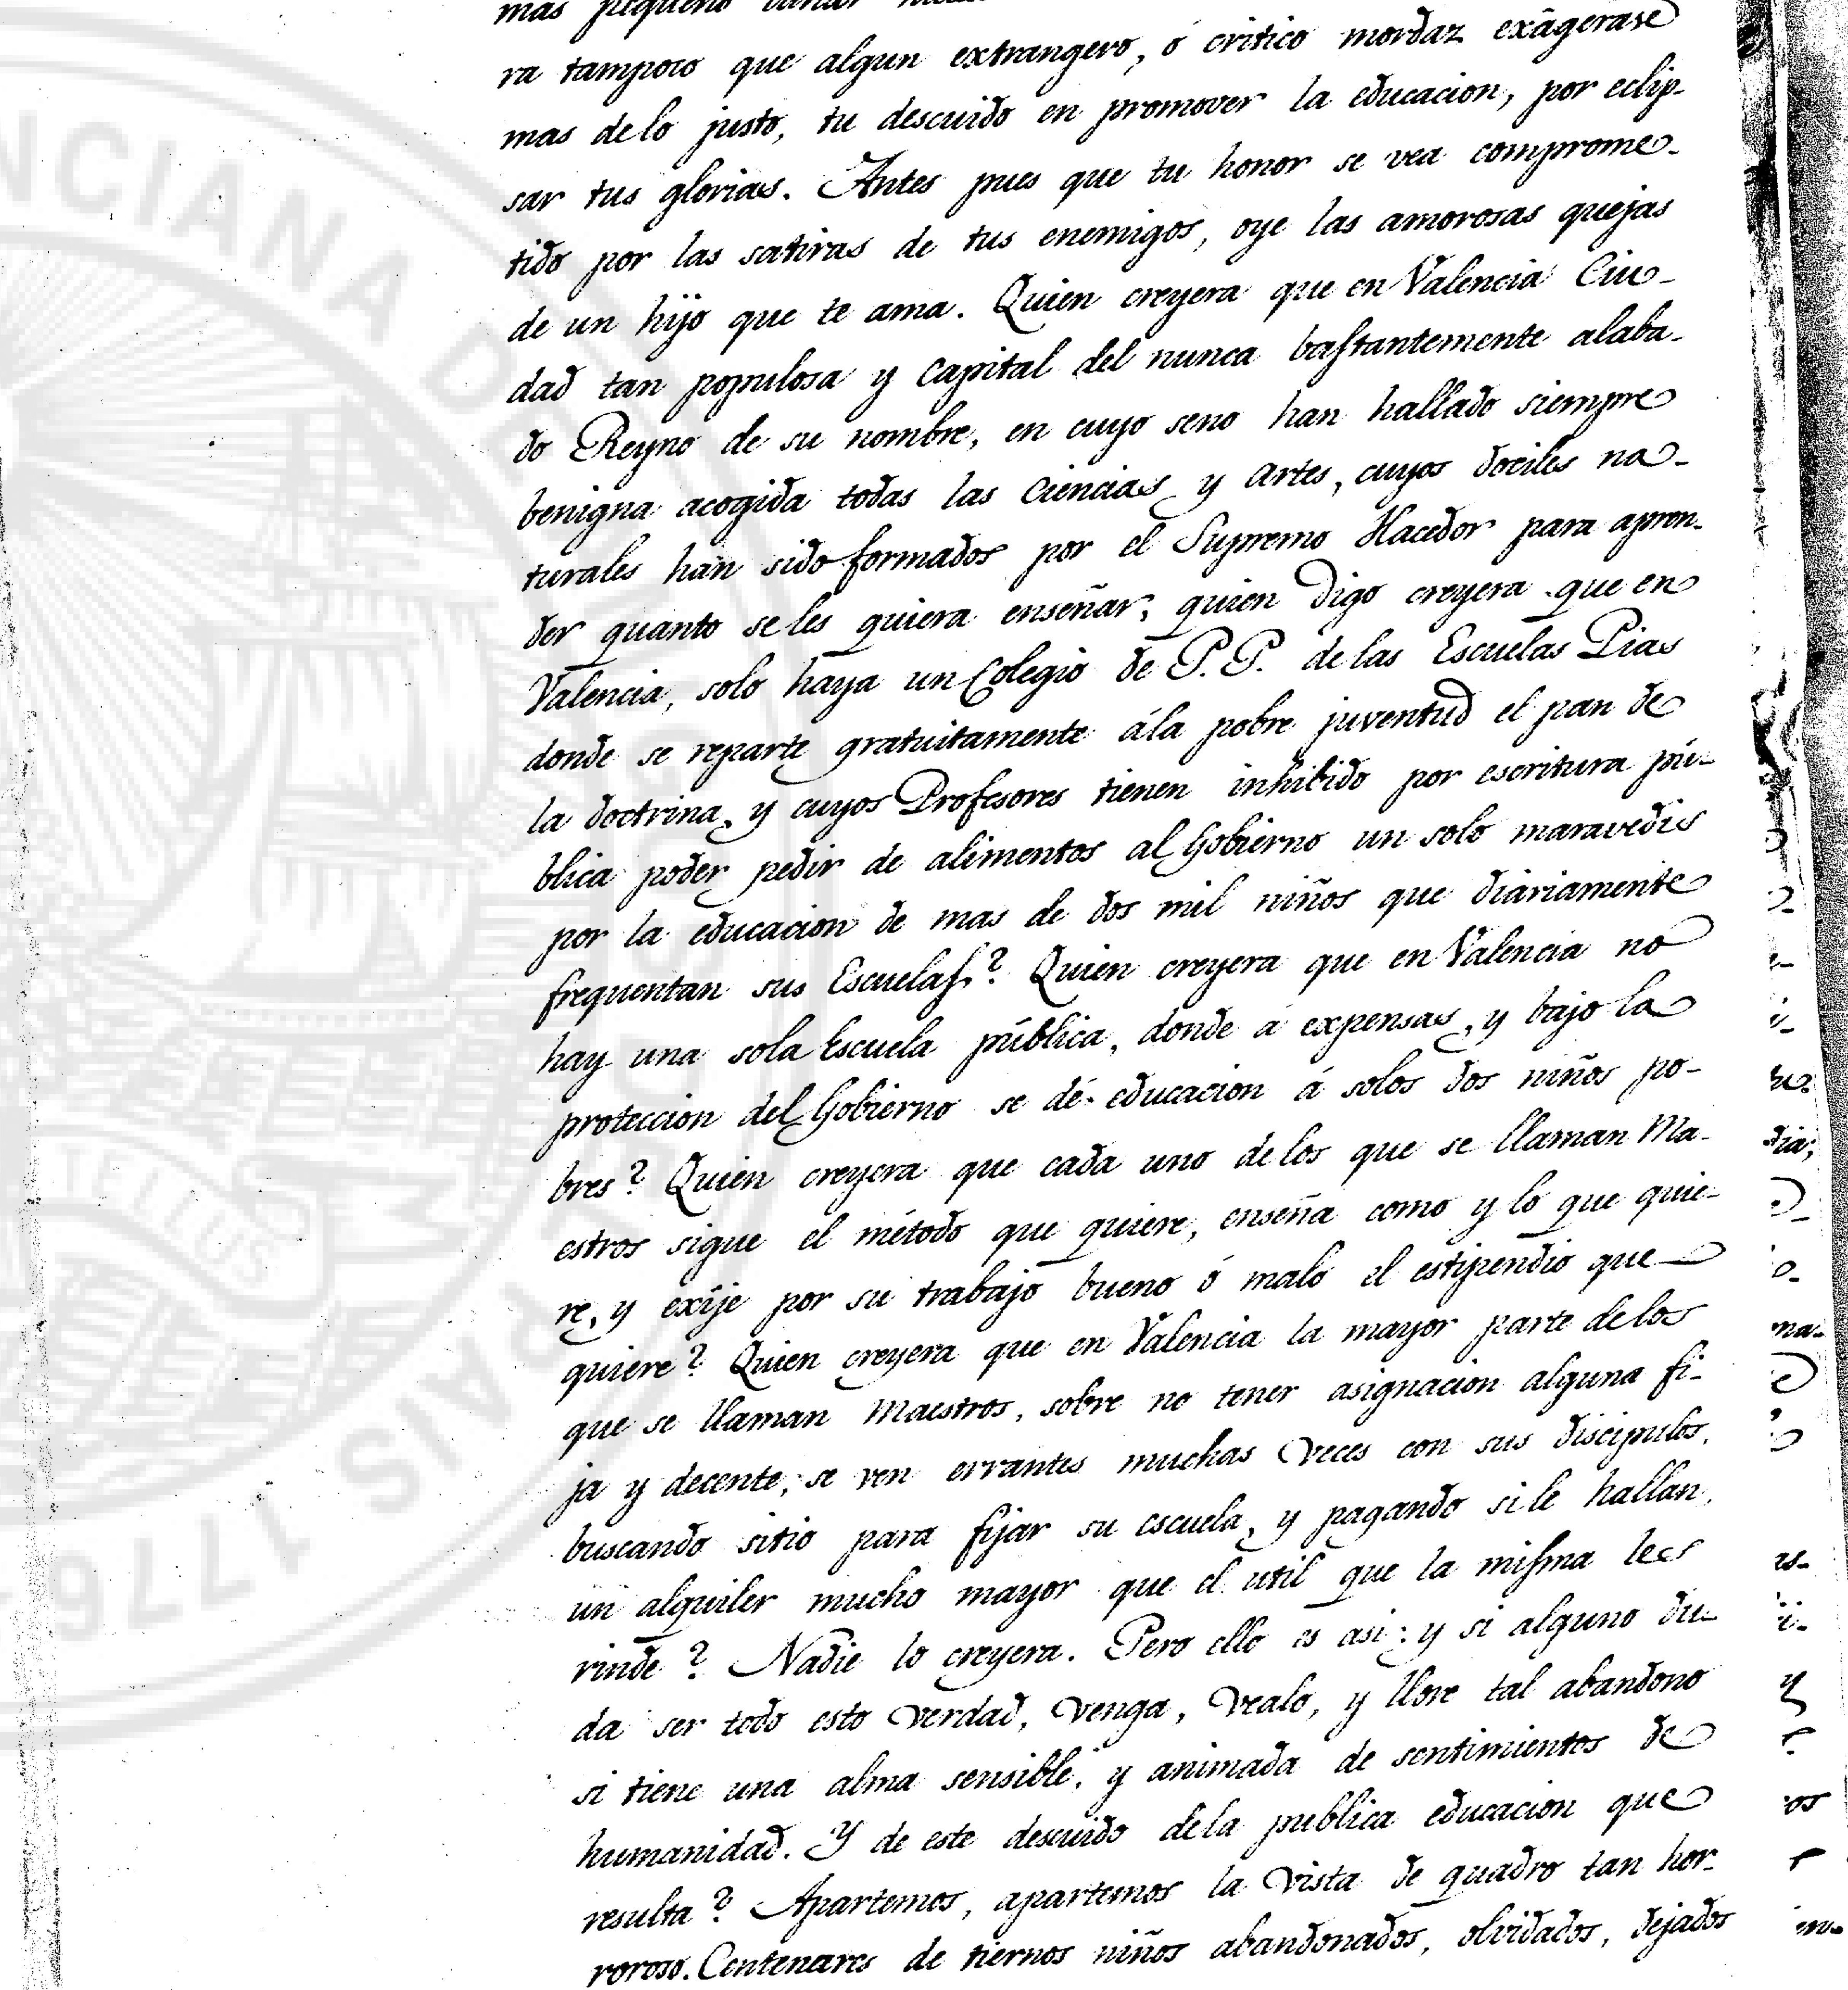 mas pequeño
ra tampoco que algun extrangero, ó critico mordaz exâgerase
mas de lo justo, tu descuido en promover la educacion, por eclip-
sar tus glorias. Antes pues que tu honor se vea comprome-
tido por las satiras de tus enemigos, oye las amorosas quejas
de un hijo que te ama. Quien creyera que en Valencia Ciu-
dad tan populosa y Capital del nunca bastantemente alaba-
do Reyno de su nombre, en cuyo seno han hallado siempre
benigna acogida todas las Ciencias y Artes, cuyos dociles na-
turales han sido formados por el Supremo Hacedor para apren-
der quanto se les quiera enseñar, quien digo creyera que en
Valencia, solo haya un Colegio de P.P. de las Escuelas Pias
donde se reparte gratuitamente á la pobre juventud el pan de
la doctrina, y cuyos Profesores tienen inhibido por escritura pú-
blica poder pedir de alimentos al Gobierno un solo maravedis
por la educacion de mas de dos mil niños que diariamente
frequentan sus Escuelas? Quien creyera que en Valencia no
hay una sola Escuela pública, donde á expensas, y bajo la
proteccion del Gobierno se dé educacion á solos dos niños po-
bres? Quien creyera que cada uno de los que se llaman Ma-
estros sigue el método que quiere, enseña como y lo que quie-
re, y exîje por su trabajo bueno ó malo el estipendio que
quiere? Quien creyera que en Valencia la mayor parte de los
que se llaman Maestros, sobre no tener asignacion alguna fi-
ja y decente, se ven errantes muchas veces con sus discipulos,
buscando sitio para fijar su escuela, y pagando si le hallan,
un alquiler mucho mayor que el util que la misma les
rinde? Nadie lo creyera. Pero ello es asi: y si alguno du-
da ser todo esto verdad, venga, vealo, y llore tal abandono
si tiene una alma sensible, y animada de sentimientos de
humanidad. Y de este descuido de la publica educacion que
resulta? Apartemos, apartemos la vista de quadro tan hor-
roroso. Centenares de tiernos niños abandonados, olvidados, dejados